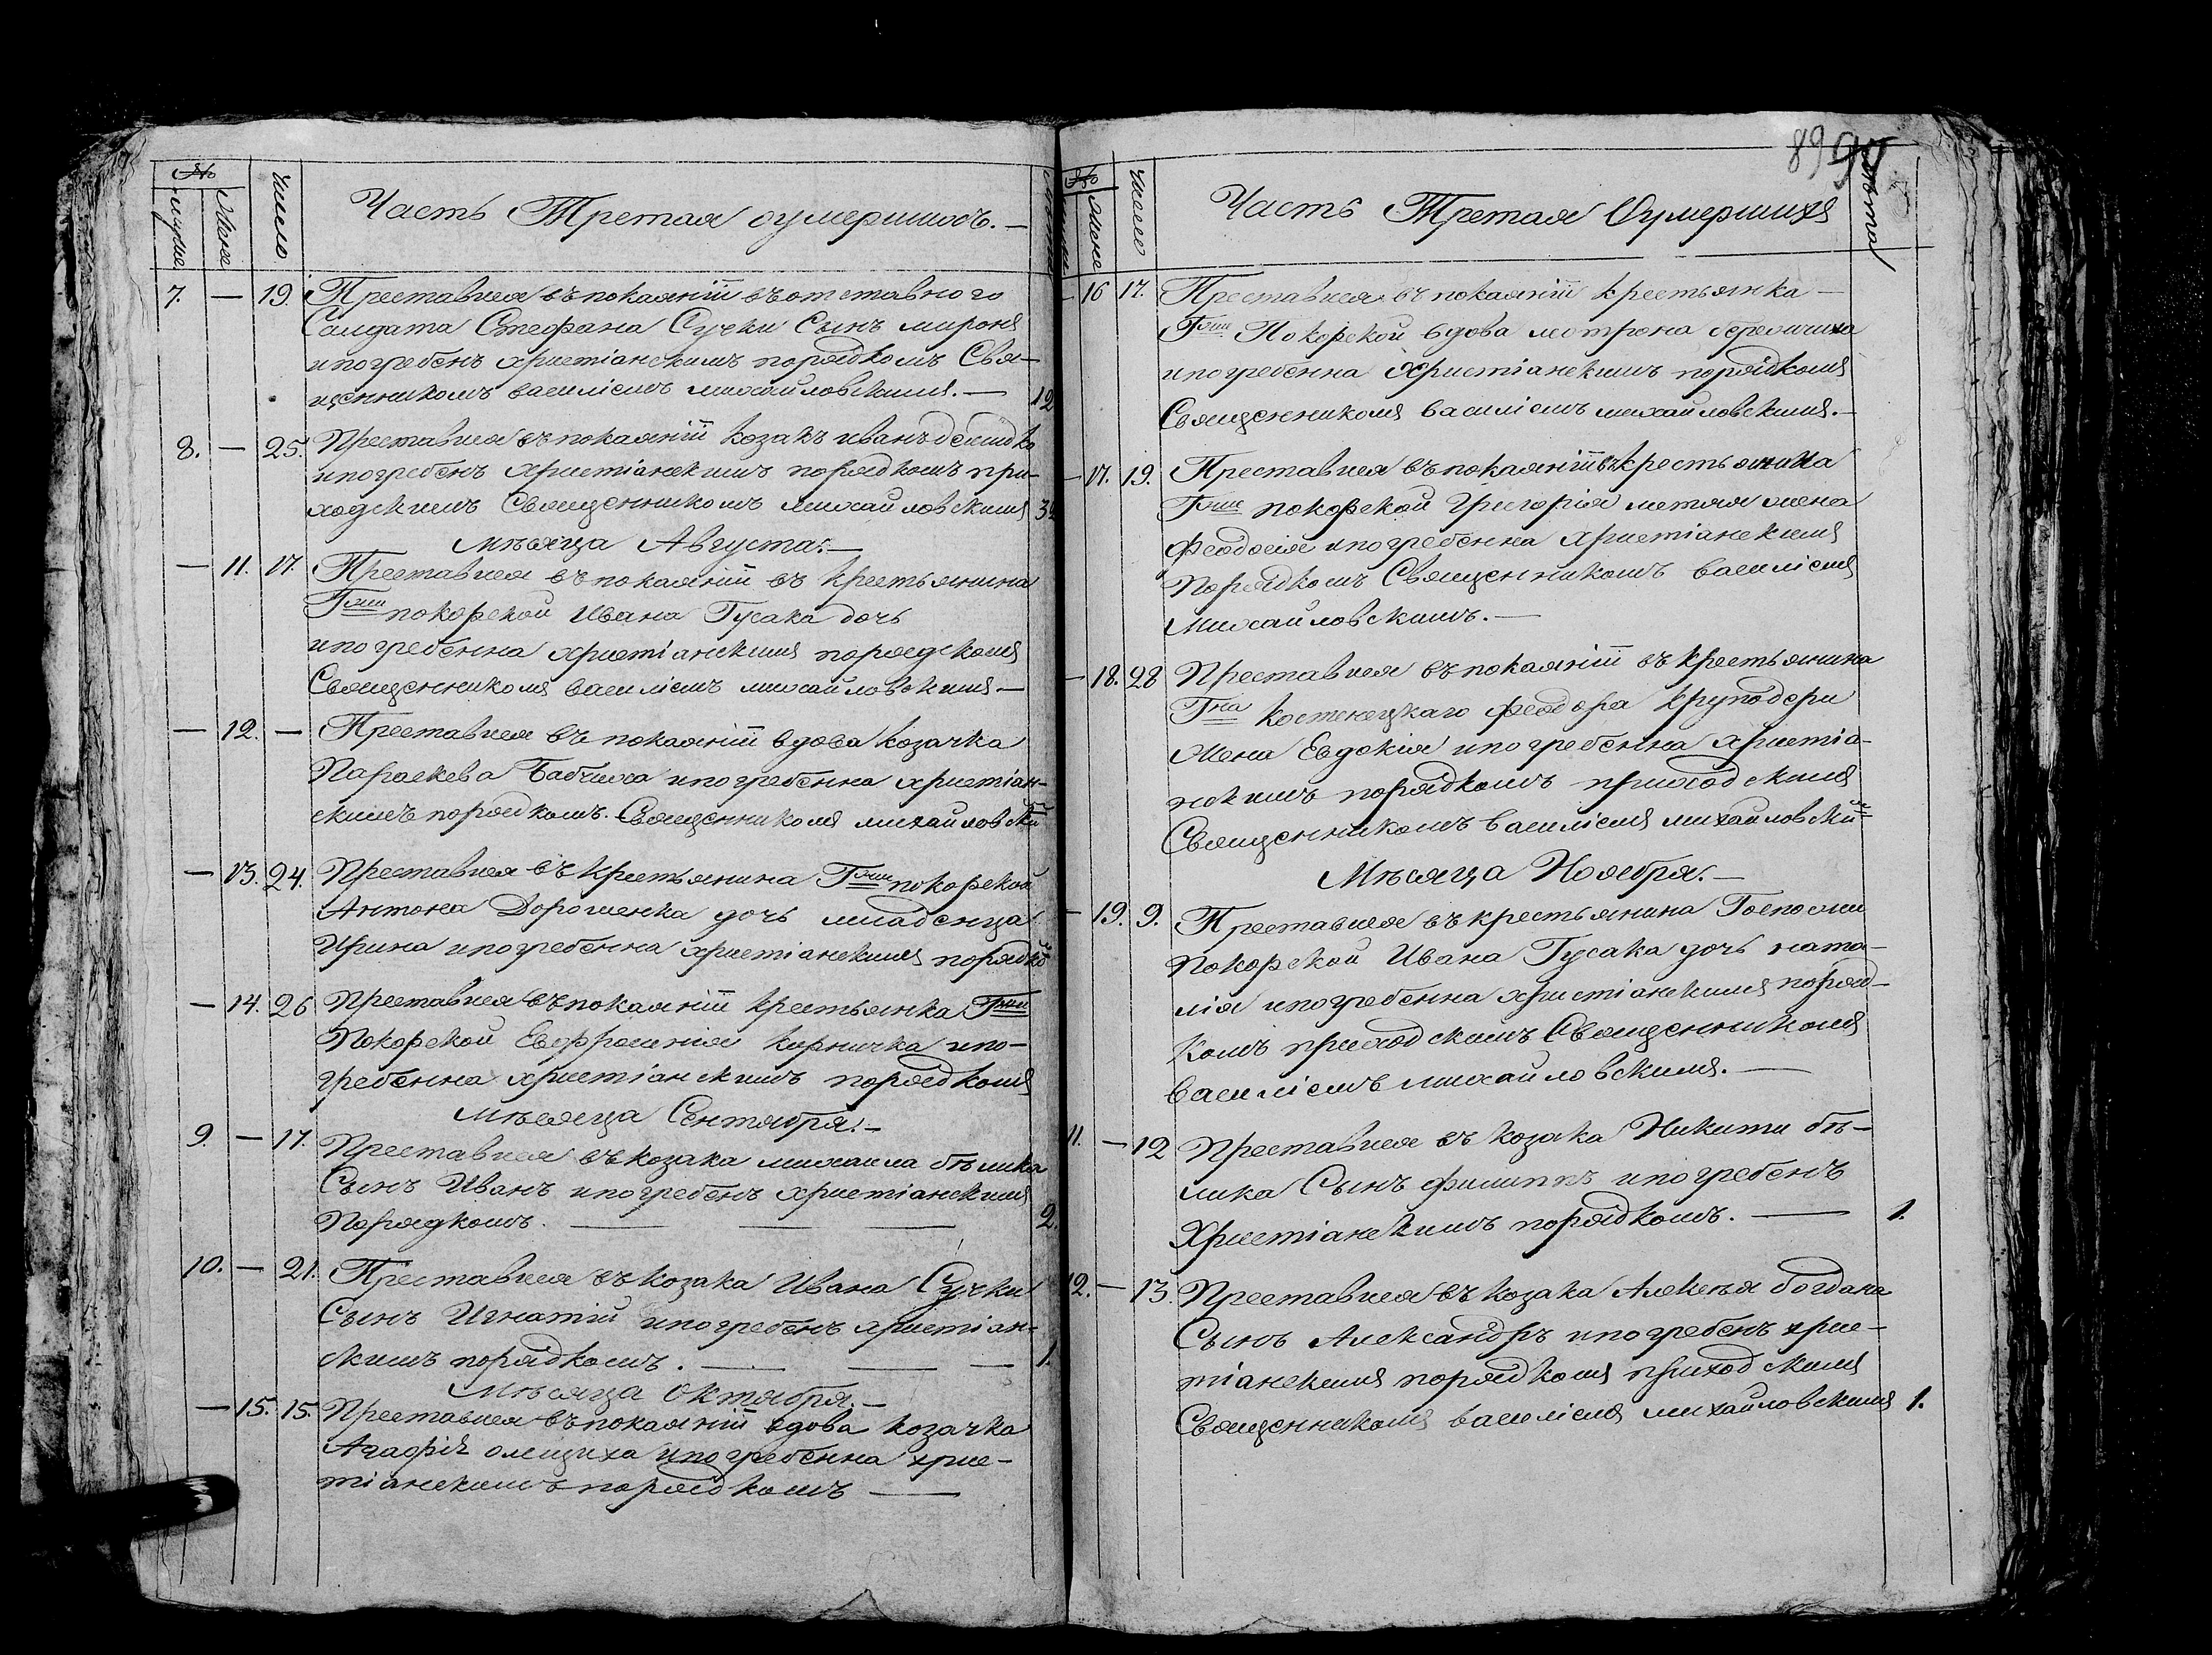 № число Часть Третая оумершихъ. — лѣта
муже. Жене
7. — 19. Преставися въ покаяніи въ отставного
Салдата Стефана Сучки Сынъ миронъ
и погребенъ христіанскимъ порядкомъ Свя-
щенникомъ василіемъ михайловскимъ. — 12
8. — 25. Преставися въ покаяніи козакъ иванъ демидко
и погребенъ христіанскимъ порядкомъ при-
ходскимъ Священникомъ михайловскимъ
Мѣсяца Августа. —
— 11. 17. Преставися въ покаяніи въ крестьянина
Гжи покорской Ивана Гусака дочь
и погребенна христіанскимъ порядскомъ
Священникомъ василіемъ михайловскимъ —
— 12. — Преставися въ покаяніи вдова козачка
Параскева Бабчиха и погребенна христіан-
скимъ порядкомъ. Священникомъ михайловски
— 13. 24. Преставися въ крестьянина Гжи покорской
Антона Дорошенка дочь младенца
Ирина и погребенна христіанскимъ порядко
— 14. 26 Преставися въ покаяніи крестьянка Гжи
Покорской Евфросинія кирничка и по-
гребенна христіанскимъ порядкомъ
Мѣсяца Сентября. —
9. — 17. Преставися въ козака михаила бѣлика
Сынъ Иванъ и погребенъ христіанскимъ
Порядкомъ. — 2.
10. — 21. Преставися въ козака Ивана Сучки
Сынъ Игнатій и погребенъ христіан-
скимъ порядкомъ. — 1.
Мѣсяца Октября. —
— 15. 15. Преставися въ покаяніи вдова козачка
Агафія олещиха и погребенна хрис-
тіанскимъ порядкомъ —
89 90
№ Жене число Часть Третая Оумершихъ лѣта
— 16 17. Преставися въ покаяніи крестьянка —
Гжи Покорской вдова мотрона
и погребенна Христіанскимъ порядкомъ
Священникомъ василіемъ михайловскимъ. —
— 17. 19. Преставися въ покаяніи въ крестьянина
Гжи покорской Григорія метлѧ жена
Феодосія и погребенна христіанскимъ
Порядкомъ Священникомъ василіемъ
Михайловскимъ. —
— 18. 28 Преставися въ покаяніи въ крестьянина
Гна костенецкаго феодора круподери
Жена Евдокія и погребенна христіа-
нскимъ порядкомъ приходскимъ
Священникомъ василіемъ михайловски
Мѣсяца Ноября. —
— 19. 9. Преставися въ крестьянина Госпожи
Покорской Ивана Гусака дочь ната-
лія и погребенна христіанскимъ поряд-
комъ приходскимъ Священникомъ
василіемъ михайловскимъ. —
11. — 12 Преставися въ козака Никити бѣ-
лика Сынъ филиппъ и погребенъ
Христіанскимъ порядкомъ. — 1.
12. — 13. Преставися въ козака Алексѣя богдана
Сынъ Александръ и погребенъ хрис-
тіанскимъ порядкомъ приходскимъ
Священникомъ василіемъ михайловскимъ 1.